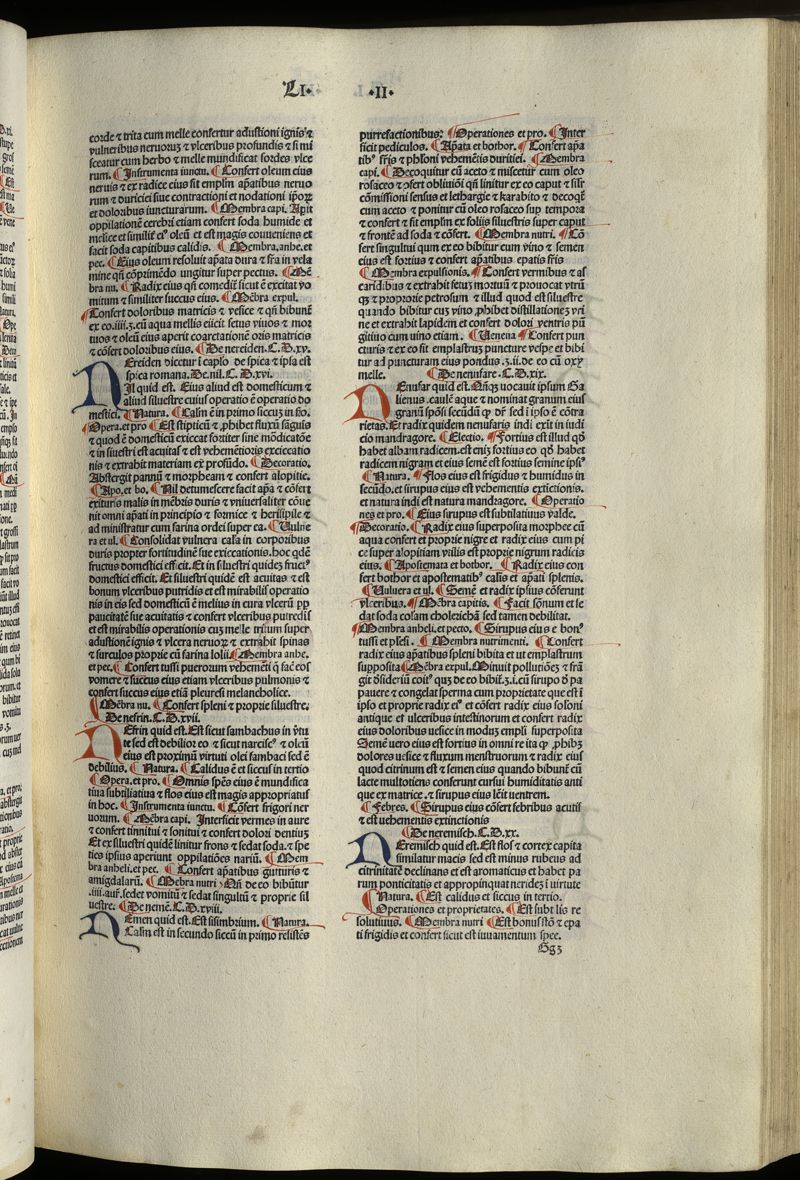 LI· ·II·
corde ⁊ trita cum melle confertur adustioni ignis ⁊
vulneribus neruorum ⁊ vlceribus profundis ⁊ si mi
sceatur cum herbo ⁊ melle mundificat sordes vlce
rum. ¶ Instrumenta iunctu. ¶ Confert oleum eius
neruis ⁊ ex radice eius fit emplm apatibus neruo
rum ⁊ duriciei siue contractioni et nodationi ipoꝝ
et doloribus iuncturarum. ¶ Membra capi. Aperit
oppilationē cerebri etiam confert soda humide et
melice et similiť eiꝰ oleū et est magis conueniens et
facit soda capitibus calidis. ¶ Membra. anhe. et
pec. ¶ Eius oleum resoluit apata dura ⁊ fra in vela
mine qn̄ cōprimēdo ungitur super pectus. ¶ Mē
bra nu. ¶ Radix eius qn̄ comediť sicut ē excitat vo
mitum ⁊ similiter succus eius. ¶ Mēbra expul.
¶ Confert doloribus matricis ⁊ vesice ⁊ qn̄ bibunť
ex eo .iiii. ʒ. cū aqua mellis eiicit fetus viuos ⁊ mor
tuos ⁊ oleū eius aperit coartationē oris matricis
⁊ cōfert doloribus eius. ¶ De nereiden. C. D. xv.
NEreiden dicetur ī caplo de spica ⁊ ipsa est
spica romana. De. nil. C. D. xvi.
NIl quid est. Eius aliud est domesticum ⁊
aliud siluestre cuius operatio ē operatio do
mestici. ¶ Natura. ¶ Calm ē in primo siccuꝫ in scō.
¶ Opera. et pro ¶ Est stipticū ⁊ ꝓhibet fluxū sāguis
⁊ quod ē domesticū exiccat fortiter sine mōdicatōe
⁊ in siuestri est acuitas ⁊ est vehemētioris exiccatio
nis ⁊ extrahit materiam ex ꝓfūdo. ¶ Decoratio.
Abstergit pannū ⁊ morpheam ⁊ confert alopitie.
¶ Apo. et bo. ¶ Nil detumescere facit apata ⁊ cōfert
exituris malis in mēbris duris ⁊ vniuersaliter cōue
nit omni apati in principio ⁊ formice ⁊ herisipile ⁊
ad ministratur cum farina ordei super ea. ¶ Vulne
ra et ul. ¶ Consolidat vulnera cala in corporibus
duris propter fortitudinē sue exiccationis. hoc qdē
fructus domestici efficit. Et in siluestri quideꝫ fructꝰ
domestici efficit. Et siluestri quidē est acuitas ⁊ est
bonum vlceribus putridis et est mirabilis operatio
nis in eis sed domesticū ē melius in cura vlcerū ꝓp
paucitatē sue acuitatis ⁊ confert vlceribus putredis
et est mirabilis operationis cuꝫ melle tritum super
adustionē ignis ⁊ vlcera neruoꝝ ⁊ extrahit spinas
⁊ surculos proprie cū farina lolii ¶ Membra anhe.
et pec. ¶ Confert tussi puerorum vehemēti q̄ facē eos
vomere ⁊ succus eius etiam vlceribus pulmonis ⁊
confert succus eius etiā pleuresi melancholice.
¶ Mēbra nu. ¶ Confert spleni ⁊ proprie siluestre.
¶ De nesrin. C. D. xvii.
NEsrin quid est. Est sicut sambachus in v̓tu
te sed est debilior eo ⁊ sicut narcisꝰ ⁊ oleū
eius est proximū virtuti olei sambaci sed ē
debilius. ¶ Natura. ¶ Calidus ē et siccus in tertio
¶ Opera. et pro. ¶ Omnis spēs eius ē mundifica
tiua subtiliatiua ⁊ flos eius est magis appropriatus
in hoc. ¶ Instrumenta iunctu. ¶ Cōfert frigori ner
uorum. ¶ Mēbra capi. Interficit vermes in aure
⁊ confert tinnitui ⁊ sonitui ⁊ confert dolori dentiuꝫ
Et ex siluestri quidē linitur frons ⁊ sedat soda. ⁊ spe
ties ipsius aperiunt oppilatiōes nariū. ¶ Mem
bra anheli. et pec. ¶ Confert apatibus gutturis ⁊
amigdalarū. ¶ Mēbra nutri ¶ Qn̄ de eo bibūtur
.iiii. aur̄. sedet vomitū ⁊ sedat singultū ⁊ proprie sil
uestre. ¶ De nemē. C. D. xviii.
NEmen quid est. Est sisimbrium. ¶ Natura.
Calm est in secundo siccū in primo resistēs
purrefactionibus: ¶ Operationes et pro. ¶ Inter
ficit pediculos. ¶ Apata et bothor. ¶ Confert apa
tibꝰ fris ⁊ phlōni vehemētis duritiei. ¶ Membra
capi. ¶ Decoquitur cū aceto ⁊ miscetur cum oleo
rosaceo ⁊ ꝯfert obliuiōi qn̄ linitur ex eo caput ⁊ silr̄
cōmissioni sensus et lethargie ⁊ karabito ⁊ decoqť
cum aceto ⁊ ponitur cū oleo rosaceo sup tempora
⁊ confert ⁊ fit emplm ex foliis siluestris super caput
⁊ frontē ad soda ⁊ cōfert. ¶ Membra nutri. ¶ Cō
fert singultui qum ex eo bibitur cum vino ⁊ semen
eius est fortius ⁊ confert apatibus epatis fris
¶ Membra expulsionis. ¶ Confert vermibus ⁊ as
caridibus ⁊ extrahit fetuꝫ mortuū ⁊ prouocat vtrū
qꝫ ⁊ proprorie petrosum ⁊ illud quod est siluestre
quando bibitur cuꝫ vino ꝓhibet distillationeꝫ vri
ne et extrahit lapidem et confert dolori ventris pū
gitiuo cum vino etiam. ¶ Venena ¶ Confert pun
cturis ⁊ ex eo fit emplastruꝫ puncture vespe et bibi
tur ad puncturam eius pondus .ʒ. ii. de eo cū oxy
melle. ¶ De nenufare. C. D. xix.
NEnufar quid est. Nāqꝫ uocauit ipsum Ga
lienus. caulē aque ⁊ nominat granum eius
granū sponsi secūdū ꝙ dr̄ sed ī ipso ē cōtra
rietas. Et radix quidem nenufaris indi exit in iudi
cio mandragore. ¶ Electio. ¶ Fortius est illud qd̄
habet albam radicem. est eniꝫ fortius eo qd̄ habet
radicem nigram et eius semē est fortius semine ipsiꝰ
¶ Natura. ¶ Flos eius est frigidus ⁊ humidus in
secūdo. et sirupus eius est vehementis extictionis.
et natura indi est natura mandragore. ¶ Operatio
nes et pro. ¶ Eius sirupus est subtilatiuus valde.
¶ Decoratio. ¶ Radix eius superposita morphee cū
aqua confert et proprie nigre et radix eius cum pi
ce super alopitiam vilis est proprie nigrum radicis
eius. ¶ Apostemata et bothor. ¶ Radix eius con
fert bothor et apostematibꝰ calis et apati splenis.
¶ Vulnera et ul. ¶ Semē et radix ipsius cōferunt
vlceribus. ¶ Mēbra capitis. ¶ Facit sōnum et se
dat soda calam cholerichā sed tamen debilitat.
¶ Membra anheli. et pecto. ¶ Sirupus eius e bonꝰ
tussi et plesi. ¶ Membra nutrimenti. ¶ Confert
radix eius apatibus spleni bibita et ut emplastrum
supposita ¶ Mēbra expul. Minuit pollutiōes ⁊ frā
git dsideriū coitꝰ quꝫ de eo bibiť .ʒ. i. cū sirupo d̓ pa
pauere ⁊ congelat sperma cum proprietate que est ī
ipso et proprie radix eiꝰ et cōfert radix eius soloni
antique et ulceribus intestinorum et confert radix
eius doloribus vesice in moduꝫ empli superposita
Semē uero eius est fortius in omni re ita ꝙ ꝓhibꝫ
dolores uesice ⁊ fluxum menstruorum ⁊ radix eius
quod citrinum est ⁊ semen eius quando bibunť cū
lacte multotiens conferunt cursui humiditatis anti
que ex matrice. ⁊ sirupus eius lēit ventrem.
¶ Febres. ¶ Sirupus eius cōfert febribus acutis
⁊ est uehementis extinctionis
¶ De neremisch. C. D. xx.
NEremisch quid est. Est flos ⁊ cortex capita
similatur macis sed est minus rubeus ad
citrinitatē declinans et est aromaticus et habet pa
rum ponticitatis et appropinquat neridez ī uirtute
¶ Natura. ¶ Est calidus et siccus in tertio.
¶ Operationes et proprietates. ¶ Est subtilis re
solutiuus. ¶ Membra nutri ¶ Est bonus stō ⁊ epa
ti frigidis et confert sicut est iuuamentum spee.
Gg3